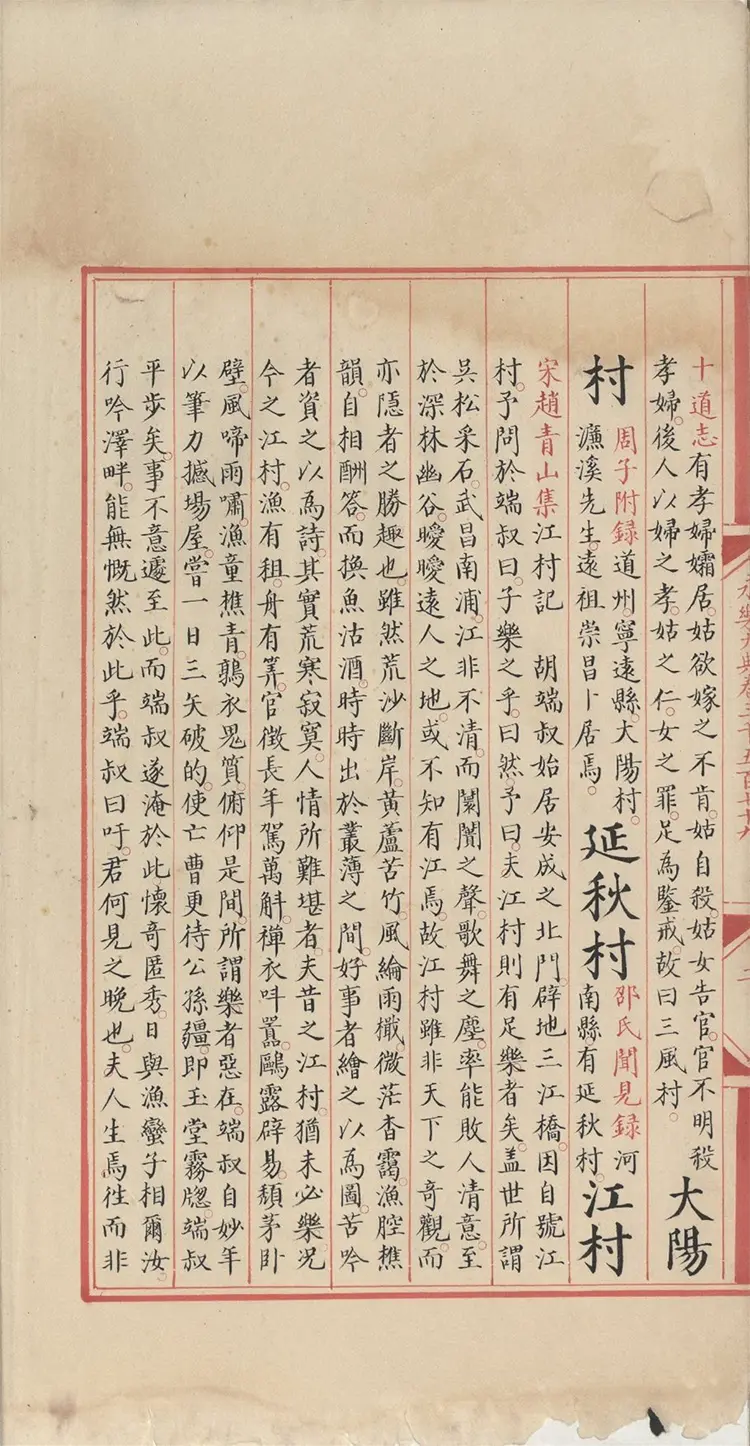 十道志有孝婦孀居。姑欲嫁之不肯。姑自殺。姑女告官。官不明殺
孝婦。後人以婦之孝。姑之仁。女之罪。足為鑒戒。故曰三風村。
大陽
村
周子附録道州。寧遠縣。大陽村。
濂溪先生。遠祖崇昌卜居焉。
延秋村
邵氏聞見録河
南縣有延秋村。
江村
宋趙青山集江村記 胡端叔始居安成之北門。辟地三江橋。因自號江
村。予問於端叔曰。子樂之乎。曰然。予曰。夫江村則有足樂者矣。盖世所謂
吳松采石。武昌南浦。江非不清。而闤闠之聲。歌舞之塵。率能敗人清意。至
於深林幽谷。曖曖遠人之地。或不知有江焉。故江村雖非天下之奇觀。而
亦隱者之勝趣也。雖然荒沙斷岸。黃蘆苦竹。風綸雨檝。微茫杳靄。漁腔樵
韻。自相酬答。而換魚沽酒。時時出於叢薄之間。好事者繪之以為圖。苦吟
者資之以為詩。其實荒寒寂寞。人情所難堪者。夫昔之江村。猶未必樂。况
今之江村。漁有租。舟有筭。官徵長年。駕萬斛。襌衣呌嚣。鷗露辟易。頹茅卧
壁。風啼雨嘯。漁童樵青。鶉衣鬼質。俯仰是間。所謂樂者惡在。端叔自妙年
以筆力撼場屋。嘗一日三矢破的。使亡曹更待公孫彊。即玉堂霧牕。端叔
平步矣。事不意遽至此。而端叔遂淹於此。懷奇匿秀。日與漁蠻子相爾汝。
行吟澤畔。能無慨然於此乎。端叔曰吁。君何見之晚也。夫人生焉往而非
永樂大典卷三千五百七十九
二